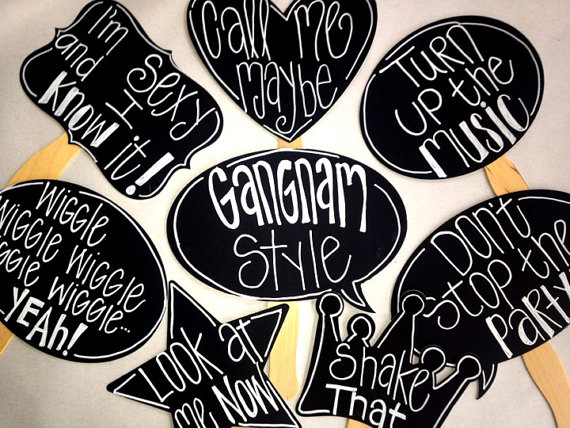 I'm Sexy
and I
Know it!
Call me
maybe
Turn
up the
Music
Wiggle
Wiggle Wiggle
Wiggle Wiggle...
Yeah!
Gangnam
Style
Don't
Stop the
Party
Look at
me Now
Shake
That